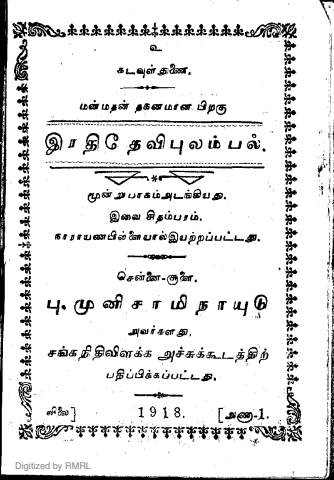 உ
கடவுள் துணை.
மன்மதன் தகனமான பிறகு
இரதிதேவிபுலம்பல்.
மூன்றுபாகம்அடங்கியது.
இவை சிதம்பரம்.
நாராயணபிள்ளையால்இயற்றப்பட்டது.
சென்னை-சூளை.
பு. முனிசாமிநாயுடு
அவர்களது
சங்கநிதிவிளக்க அச்சுக்கூடத்திற்
பதிப்பிக்கப்பட்டது.
விலை] 1918. [அணா-1.
Digitized by RMRL